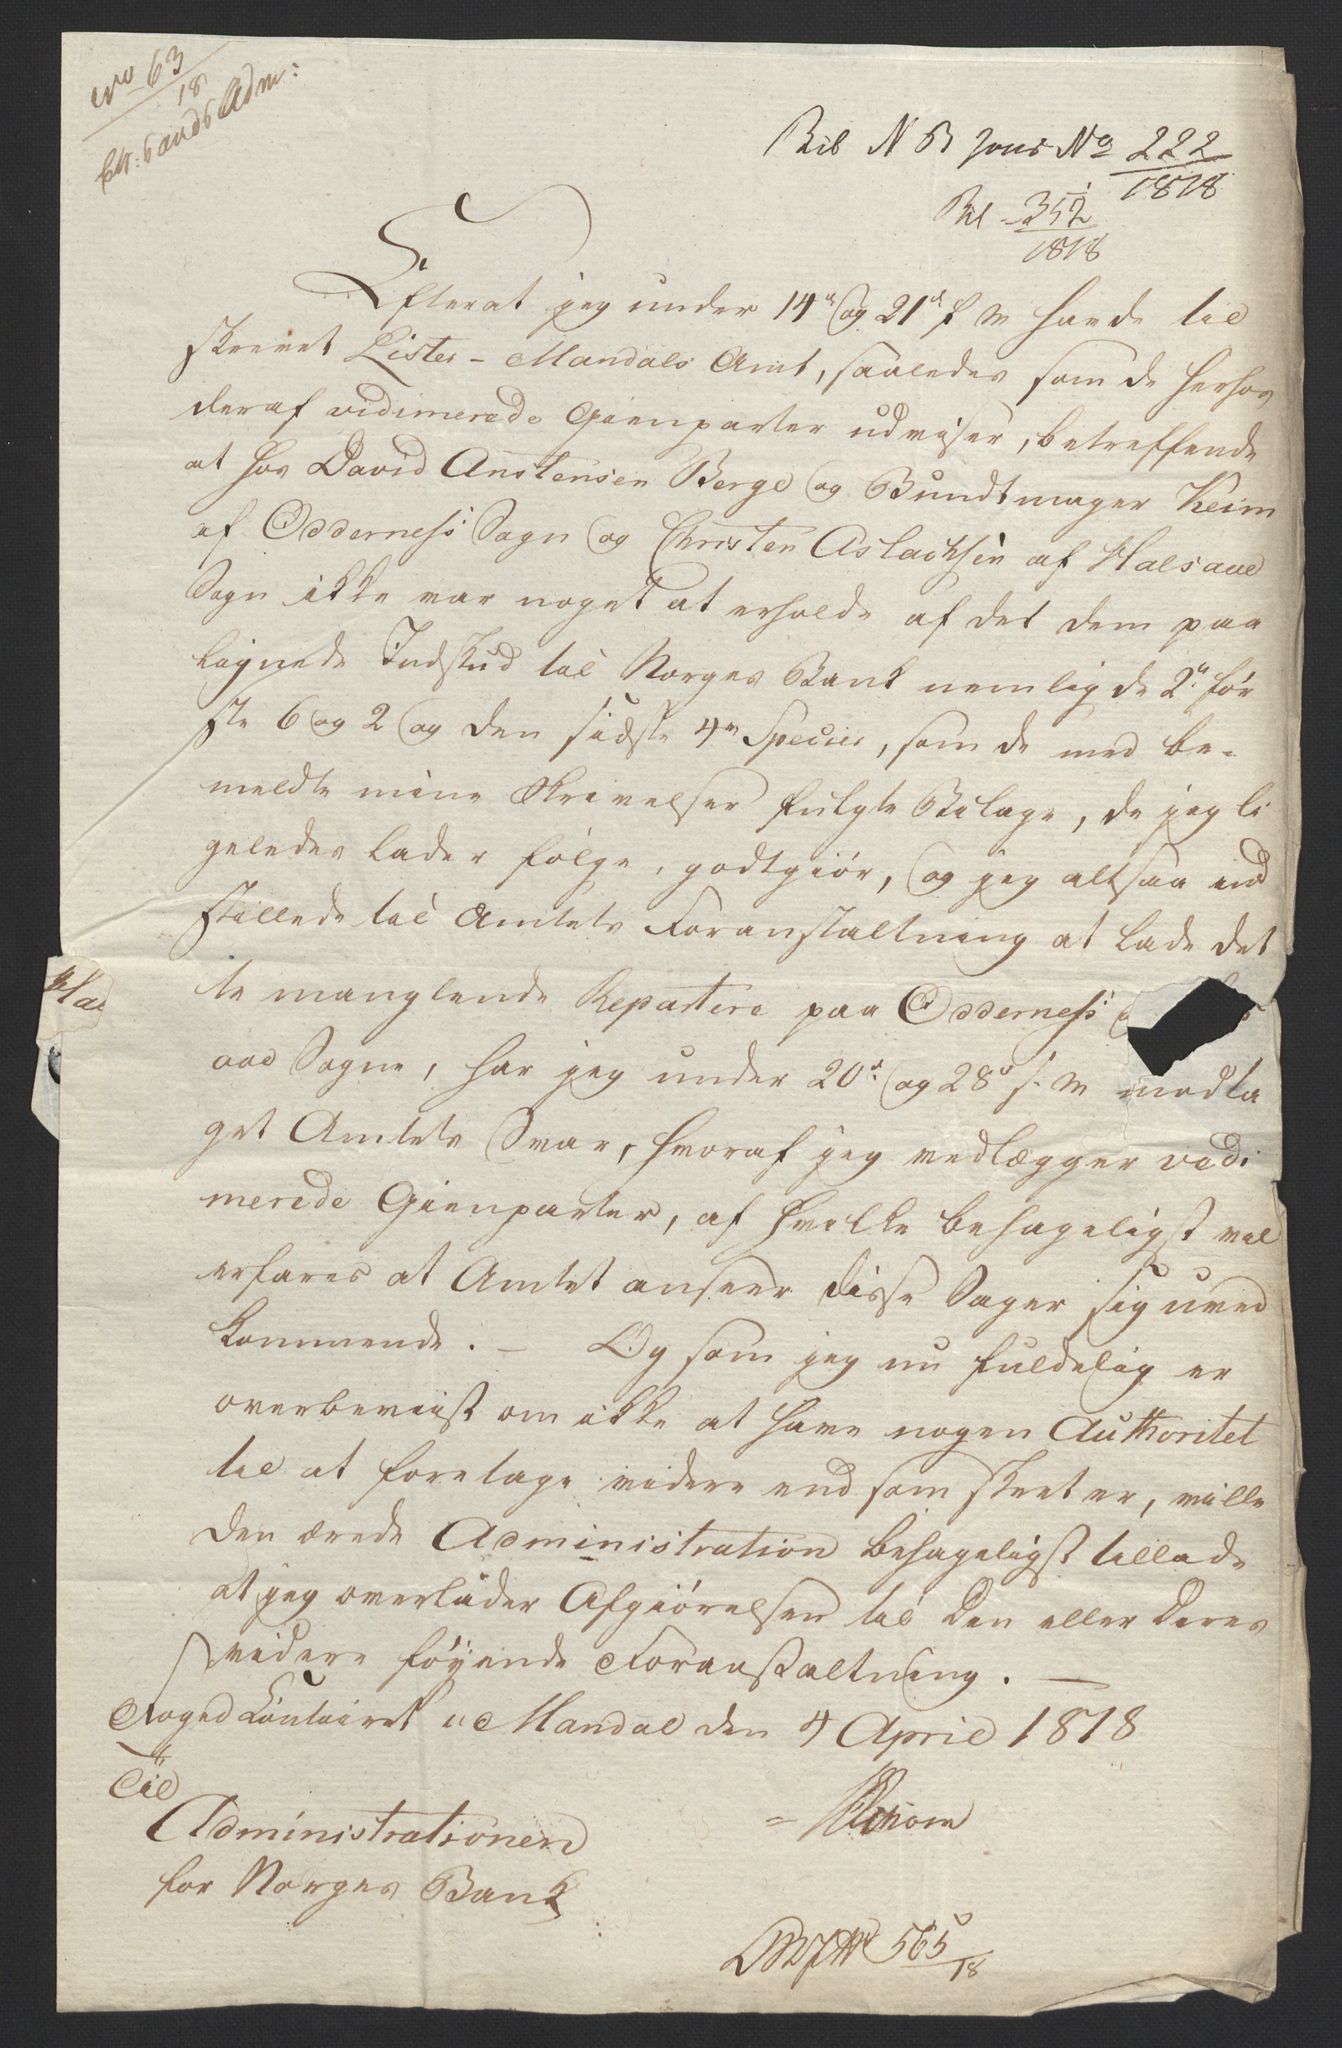 No 63
18
Chr:sands Adm:
Bil N B Jour No 222
1818
Bil 352
1818
Efterat jeg under 14d og 21d f M havde til
skrevet Lister-Mandals Amt, saaledes som de herhos
deraf vidimerede Gienparter udviser, betreffende
at hos David Anstensen Berge og Bundtmager Keim
af Odderness Sogn og Christen Aslachsen af Halsaae
Sogn ikke var noget at erholde af det dem paa
lignede Indskud til Norges Bank nemlig de 2de før
ste 6 og 2 og den sidste 4 Species, som de med be-
meldte mine Skrivelser fulgte Bilage, de jeg li
geledes lader følge, godtgiør, og jeg altsaa ind
stillede til Amtets Foranstaltning at lade det
te manglende Repartere paa Odderness
aae Sogne, har jeg under 20d og 28d s. M modta
get Amtets Svar, hvoraf jeg vedlægger vidi
merede Gienparter, af hvilke behageligst vil
erfares at Amtet anseer disse Sager sig uved
kommende. - Og som jeg nu fuldelig er
overbeviist om ikke at have nogen Authoritet
til at foretage videre end som skeet er, ville
den ærede Administration behageligst tillade
at jeg overlader Afgiørelsen til den eller deres
videre føyende Foranstaltning. -
Foged Contoiret i Mandal den 4 April 1818
Til
Administrationen
for Norges Bank
565
18
Hal